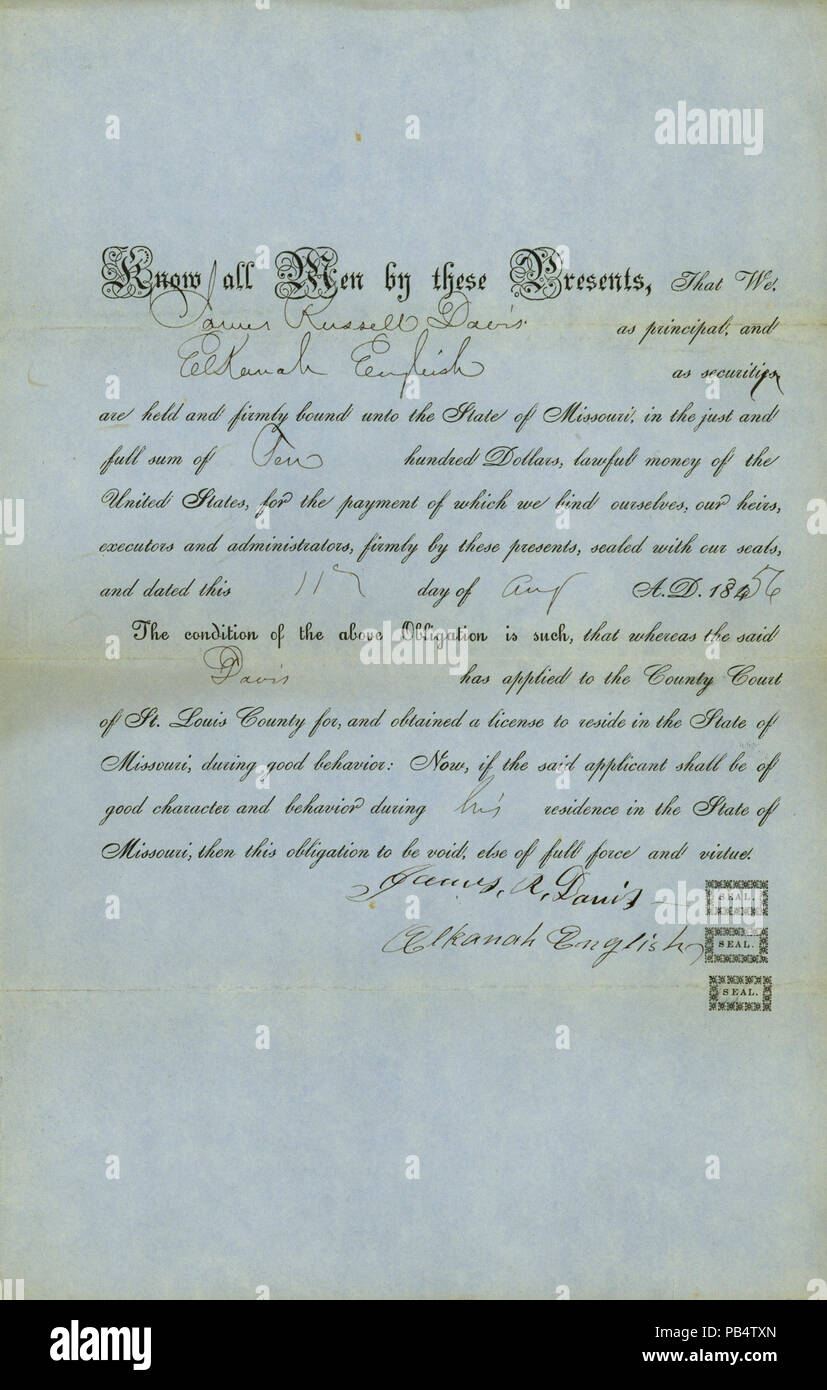 Know all Men by these Presents, That We,
James Russell Davis as principal, and
Elkanah English as security
are held and firmly bound unto the State of Missouri, in the just and
full sum of Ten hundred Dollars, lawful money of the
United States, for the payment of which we bind ourselves, our heirs,
executors and administrators, firmly by these presents, sealed with our seals,
and dated this 11 day of Aug A.D. 1856
The condition of the above Obligation is such, that whereas the said
Davis has applied to the County Court
of St. Louis County for, and obtained a license to reside in the State of
Missouri, during good behavior: Now, if the said applicant shall be of
good character and behavior during his residence in the State of
Missouri, then this obligation to be void, else of full force and virtue.
James, R, Davis SEAL.
Elkanah English SEAL.
SEAL.
alamy
alamy
Image ID: PB4TXN
www.alamy.com